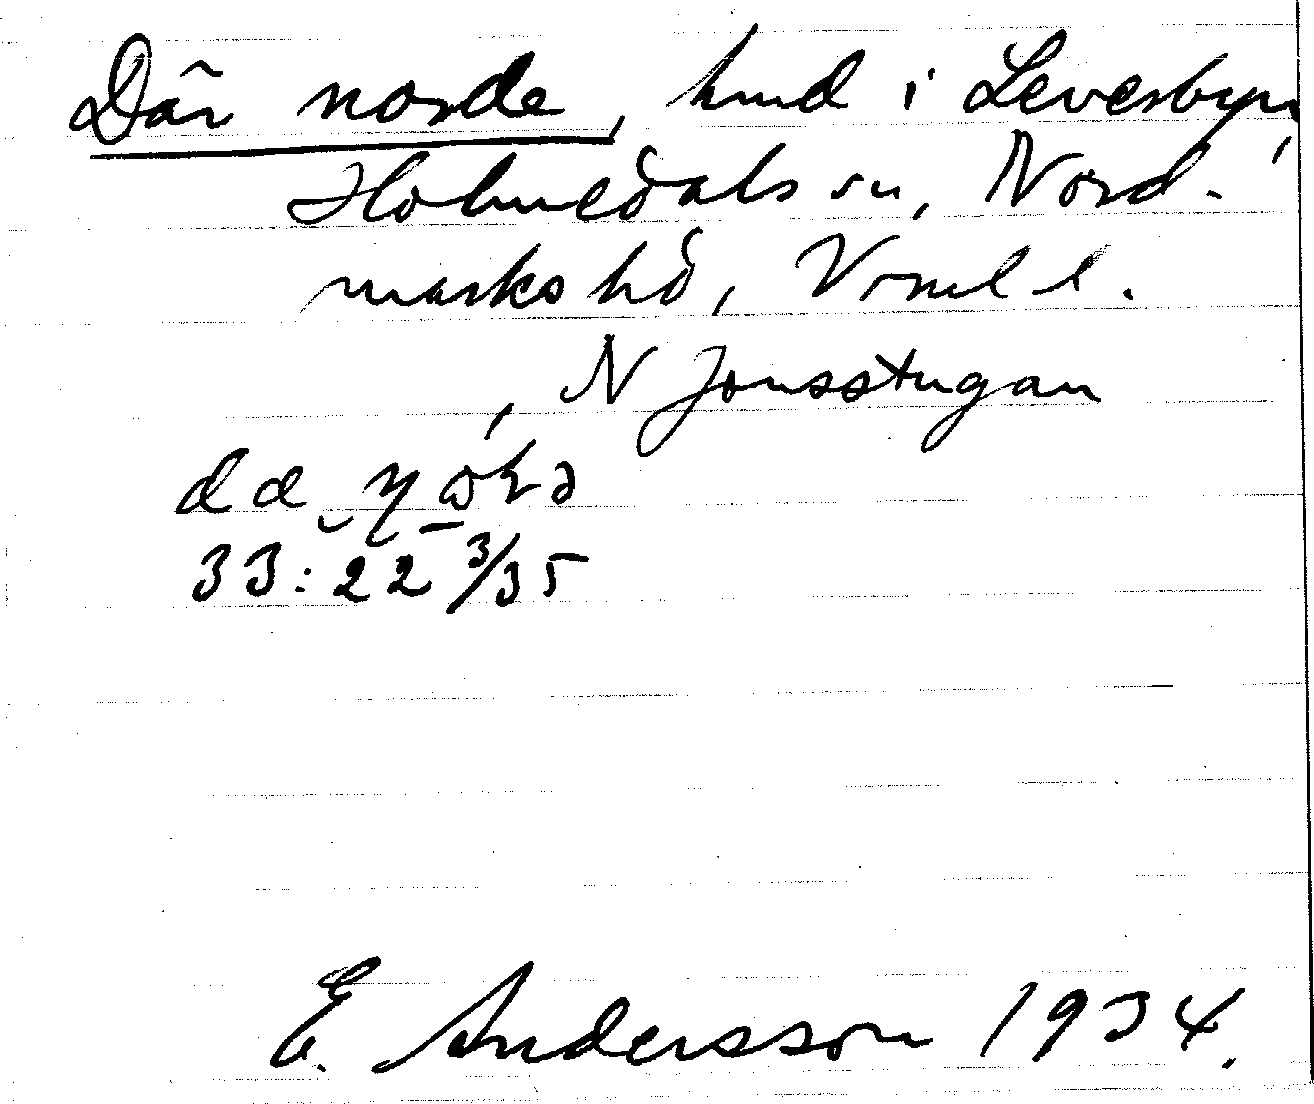 Där norde, hmd i Levesbyn,
Holmedals sn, Nord-
marks hd, Vrml l.
, N Jonsstugan
33:22 3/35
E. Andersson 1934.